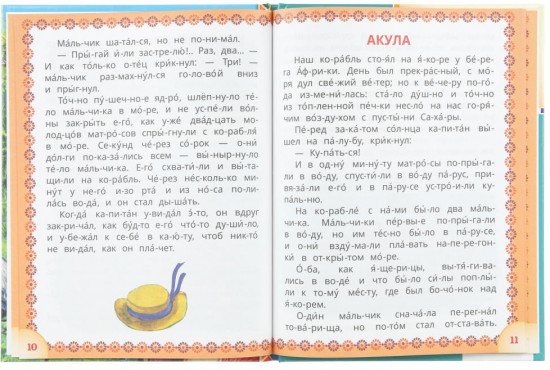 Ма́ль-чик ша-та́л-ся, но не по-ни-ма́л.
— Пры́-гай и́-ли зас-тре-лю́!.. Раз, два... —
И как то́ль-ко о-те́ц кри́к-нул: — Три! —
ма́ль-чик раз-мах-ну́л-ся го-ло-во́й вниз
и пры́г-нул.
То́ч-но пу́-шеч-но-е яд-ро́, шлёп-ну́-ло те́-
ло ма́ль-чи-ка в мо́-ре, и не ус-пе́-ли во́л-
ны зак-ры́ть е-го́, как у-же́ два́д-цать мо-
лод-цо́в мат-ро́-сов спры́г-ну-ли с ко-раб-ля́
в мо́-ре. Се-ку́нд че́-рез со́-рок — о-ни́
до́л-ги по-ка-за́-лись всем — вы́-ныр-ну-ло
те́-ло ма́ль-чи-ка. Е-го́ схва-ти́-ли и вы́-та-
щи-ли на ко-ра́бль. Че́-рез не́с-коль-ко ми-
ну́т у не-го́ и-зо рта́ и из но́-са по-ли-
ла́сь во-да́, и он стал ды-ша́ть.
Ког-да́ ка-пи-та́н у-ви-да́л э́-то, он вдруг
зак-ри-ча́л, как бу́д-то е-го́ что́-то ду-ши́-ло,
и у-бе-жа́л к се-бе́ в ка-ю́-ту, чтоб ник-то́
не ви-да́л, как он пла́-чет.
10
АКУЛА
Наш ко-ра́бль сто-я́л на я́-ко-ре у бе́-ре-
га А́ф-ри-ки. День был пре-кра́с-ный, с мо́-
ря дул све́-жий ве́-тер; но к ве́-че-ру по-го́-
да из-ме-ни́-лась: ста́-ло ду́ш-но и то́ч-но
из то́п-лен-ной пе́ч-ки нес-ло́ на нас го-ря́-
чим во́з-ду-хом с пус-ты́-ни Са-ха́-ры.
Пе́-ред за-ка́-том со́лн-ца ка-пи-та́н вы́-
шел на па́-лу-бу, кри́к-нул:
— Ку-па́ть-ся!
И в од-ну́ ми-ну́-ту мат-ро́-сы по-пры́-га-
ли в во́-ду, спус-ти́-ли в во́-ду па́-рус, при-
вя-за́-ли е-го́ и в па́-ру-се ус-тро́-и-ли ку-
па́ль-ню.
На ко-раб-ле́ с на́-ми бы́-ло два ма́ль-
чи-ка. Ма́ль-чи-ки пе́р-вы-е по-пры́-га-ли
в во́-ду, но им те́с-но бы́-ло в па́-ру-се,
и о-ни́ взду́-ма-ли пла́-вать на-пе-ре-гон-
ки́ в от-кры́-том мо́-ре.
О́-ба, как я́-ще-ри-цы, вы-тя́-ги-ва-
лись в во-де́ и что бы́-ло си́-лы поп-лы́-
ли к то-му́ ме́с-ту, где был бо-чо́-нок над
я́-ко-рем.
О-ди́н ма́ль-чик сна-ча́-ла пе-рег-на́л
то-ва́-ри-ща, но по-то́м стал от-ста-ва́ть.
11